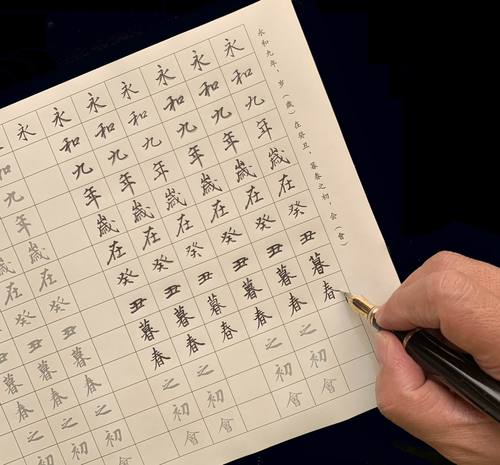 永和九年，岁（歲）在癸丑，暮春之初，会（會）
永和九年歲在癸丑暮春
永和九年歲在癸丑暮春之初會
永和九年歲在癸丑暮春之初會
永和九年歲在癸丑暮春
永和九年歲在癸丑暮春初會
永和九年歲在癸丑暮春之初會
永
和九年歲在癸丑暮春之初會
歲在癸丑暮春之初
丑暮春之初